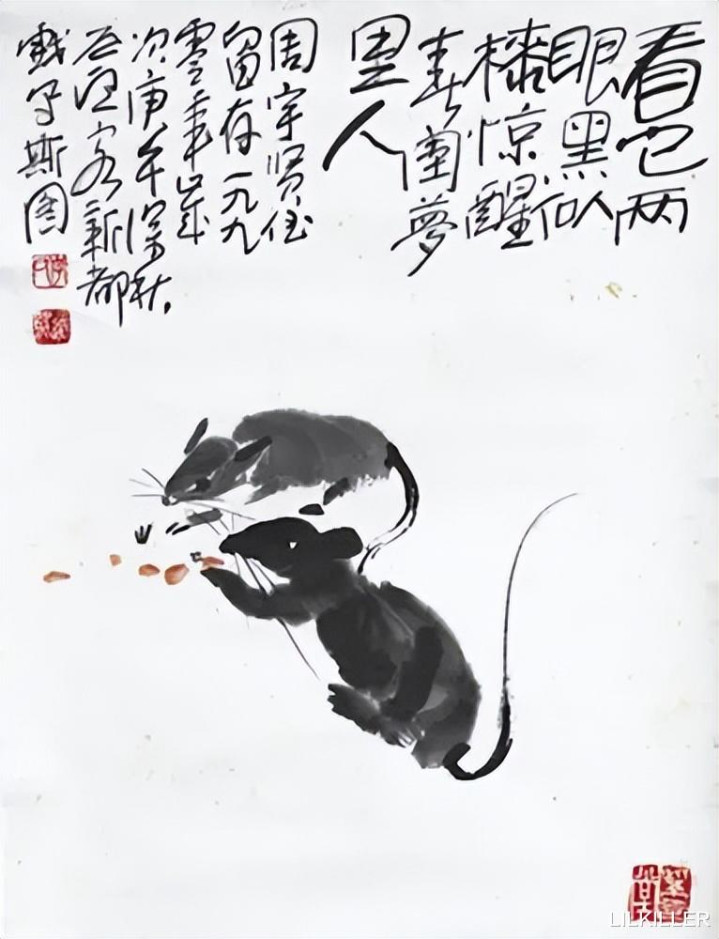 看它两
眼黑似
惊醒
春闺夢
里人
周宇贤侄
留存一九九
零年岁
次庚午深秋,
客新都
戏写斯图
LILKILLER